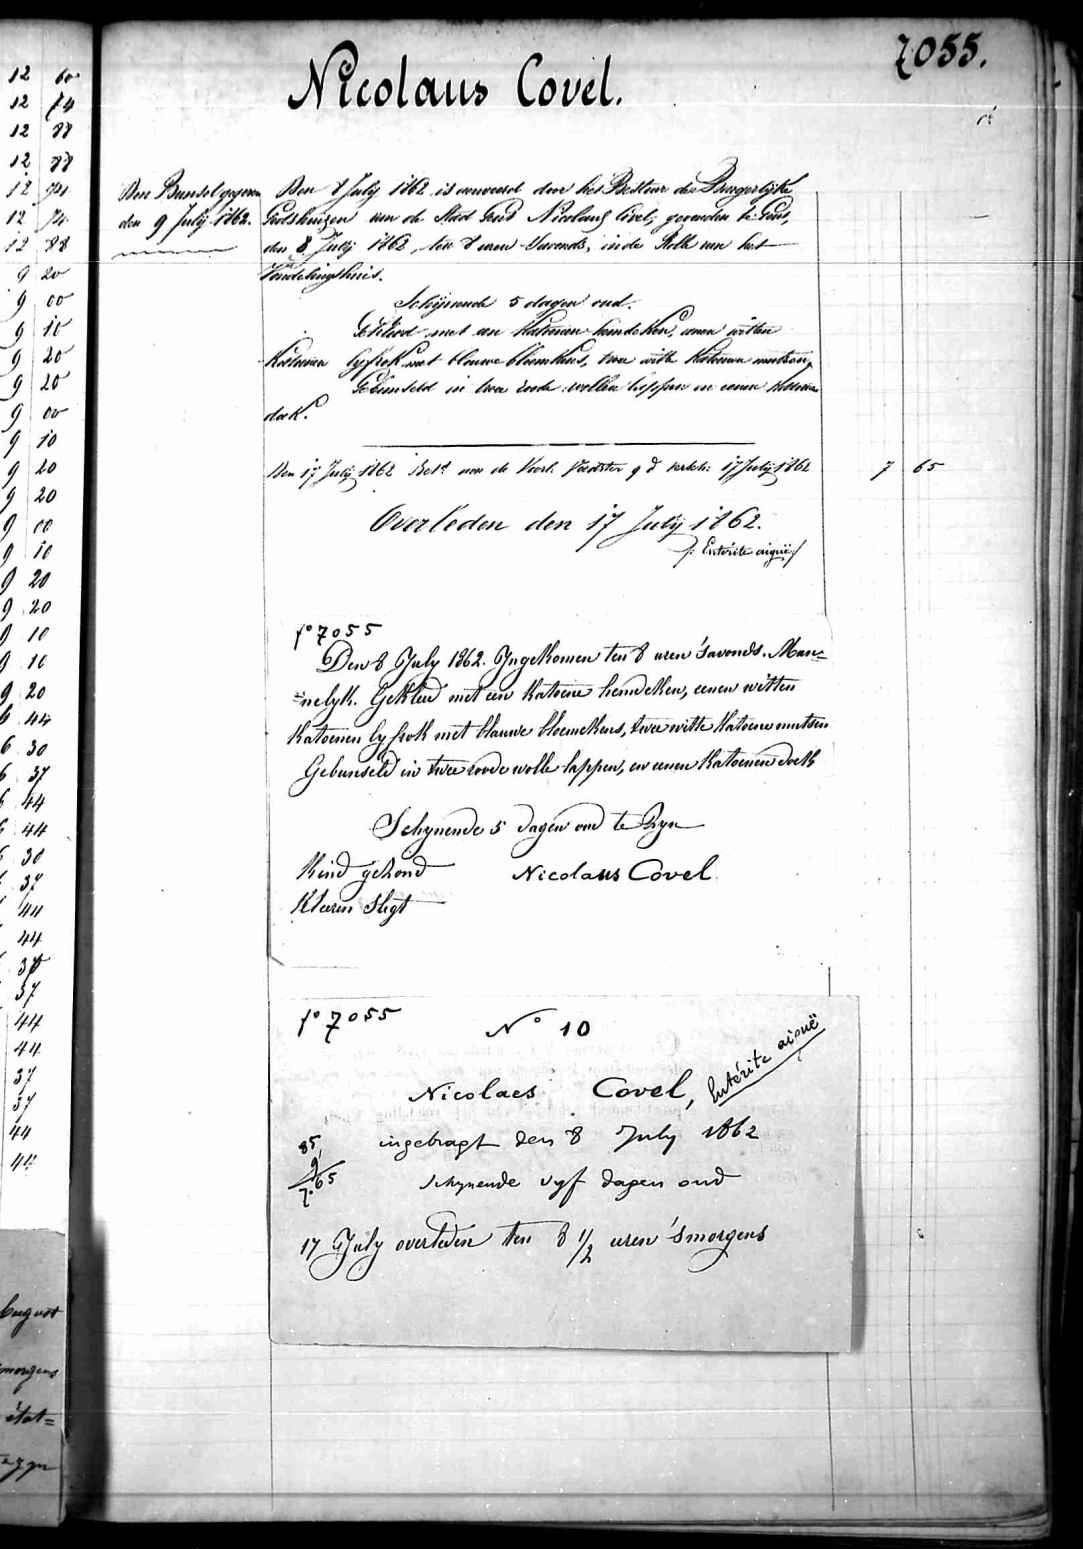 7055.
Nicolaus Covel.
Den Bunsel gegeven
den 9 July 1862.
Den 8 July 1862 is aenveird door het Bestuur der Burgerlijke
Godshuizen van de Stad Gend Nicolaus Covel, gevonden te Gend,
den 8 July 1862, ten 8 uren 's avonds, in de Rolle van het
Vondelingshuis.
Schijnende 5 dagen oud.
Gekleed met een katoenen hemdeken, eenen witten
katoenen lyfrok met blauwe bloemkens, twee witte katoenen mutsen,
Gebunseld in twee roode wollen lappen en eenen katoenen
doek.
Den 17 July 1862 Bet.d aan de Voorl. Voedster 9 d verblh: 17 July 1862 7 65
Overleden den 17 July 1862.
/: Entérite aiguë :/
f° 7055
Den 8 July 1862. Ingekomen ten 8 uren 's avonds. Man=
=nelyk. Gekleed met een katoene hemdeken, eenen witten
katoenen lyfrok met blauwe bloemekens, twee witte katoene mutsen
Gebunseld in twee roode wolle lappen, en eenen katoenen doek
Schynende 5 dagen oud te zyn
Kind gezond Nicolaus Covel
Kleeren slegt
f° 7055
N° 10
Entérite aiguë
Nicolaes Covel,
ingebragt den 8 July 1862
85
9
7.65
schynende vyf dagen oud
17 July overleden ten 8 1/2 uren 's morgens
12 60
12 74
12 88
12 88
12 74
12 88
9 20
9 00
9 10
9 20
9 20
9 00
9 10
9 20
9 20
9 00
9 10
9 20
9 20
9 10
9 10
9 20
6 44
6 30
6 37
44
44
30
37
44
44
37
44
44
37
37
44
44
August
morgens
état=